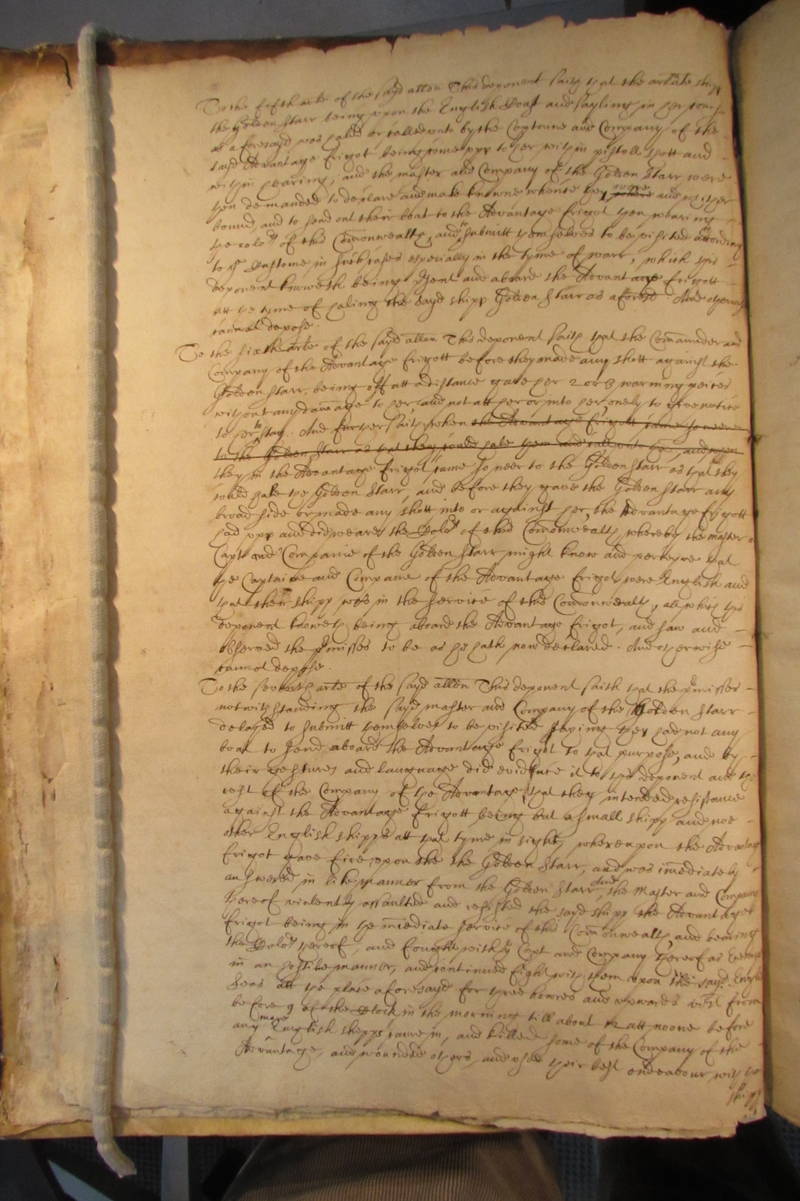 To the fifth arle of the sayd allon This deponent saith that the arlate shipp
the Golden Starr being upon the English Coast and sayling in her course
as aforesayd was haled or called unto by the Captaine and Company of the
sayd Advantage frigot being come upp to her within pistoll shott and
within hearing, and the master and Company of the Golden Starr were
then demanded to declare and make knowne whence they were and whither
bound, and to send out their boat to the Advantage frigot then wearing
the colors of this Commonwealth, and submitt themselves to be visited according
to ye Custome in such cases especially in the tyme of warr, which this
deponent knoweth being present and aboard the Advantage frigott
att the tyme of haling the sayd shipp Golden Starr as aforesd And otherwise
cannot depose.
To the sixth arle of the sayd allon This deponent saith that the Commander and
Company of the Advantage frigott before they made any shott against the
Golden Starr, being off att a distance gave her 2 or 3 warning peices
without any damage to her, and not att her or into her, onely to give notice
to her to stay. And further saith when the Advantage frigott came so neere
to the Golden Starr as that they could hale them and call unto her, and when
they in the Advantage frigot came so neer to the Golden Starr as that they
could hale the Golden Starr, and before they gave the Golden Starr any
broad side or made any shott into or against her, the Advantage frigott
had upp and did weare the Colors of this Commonwealth, whereby the master or
Capt and Companie of the Golden Starr might know and perceive that
the Captaine and Companie of the Advantage frigot were English and
that their shipp was in the service of this Commonwealth, all which this
deponent knoweth being aboard the Advantage frigot, and saw and
observed the premisses to be as he hath now declared. And otherwise
cannot depose.
To the seventh arle of the sayd allon This deponent saith that the premisses
notwithstanding the sayd master and Company of the Golden Starr
delayed to submitt themselves to be visited saying they had not any
boat to send aboard the Advantage frigot to that purpose, and by
their gestures and language did evidence it to this deponent and the
rest of the Company of the Advantage, that they intended resistance
against the Advantage frigott being but a small shipp and noe
other English shipps att that tyme in sight, whereupon the Advantage
frigot gave fire upon the the Golden Starr, and was imediately
answered in like manner from the Golden Starr, and the Master and Company
thereof violently assaulted and resisted the sayd shipp the Advantage
frigot being in the imediate service of this Commonwealth, and bearing
the Colors thereof, and fought with ye Capt and Company thereof as Enemies
in an hostile manner, and continued fight with them upon the sayd English
seas att the place aforesayd for three houres and upwards vizt from
before 9 of the Clock in the morning till about 12 att noone before
any more English shipps came in, and killed some of the Company of the
Advantage, and wounded others, and used their best endeavour with